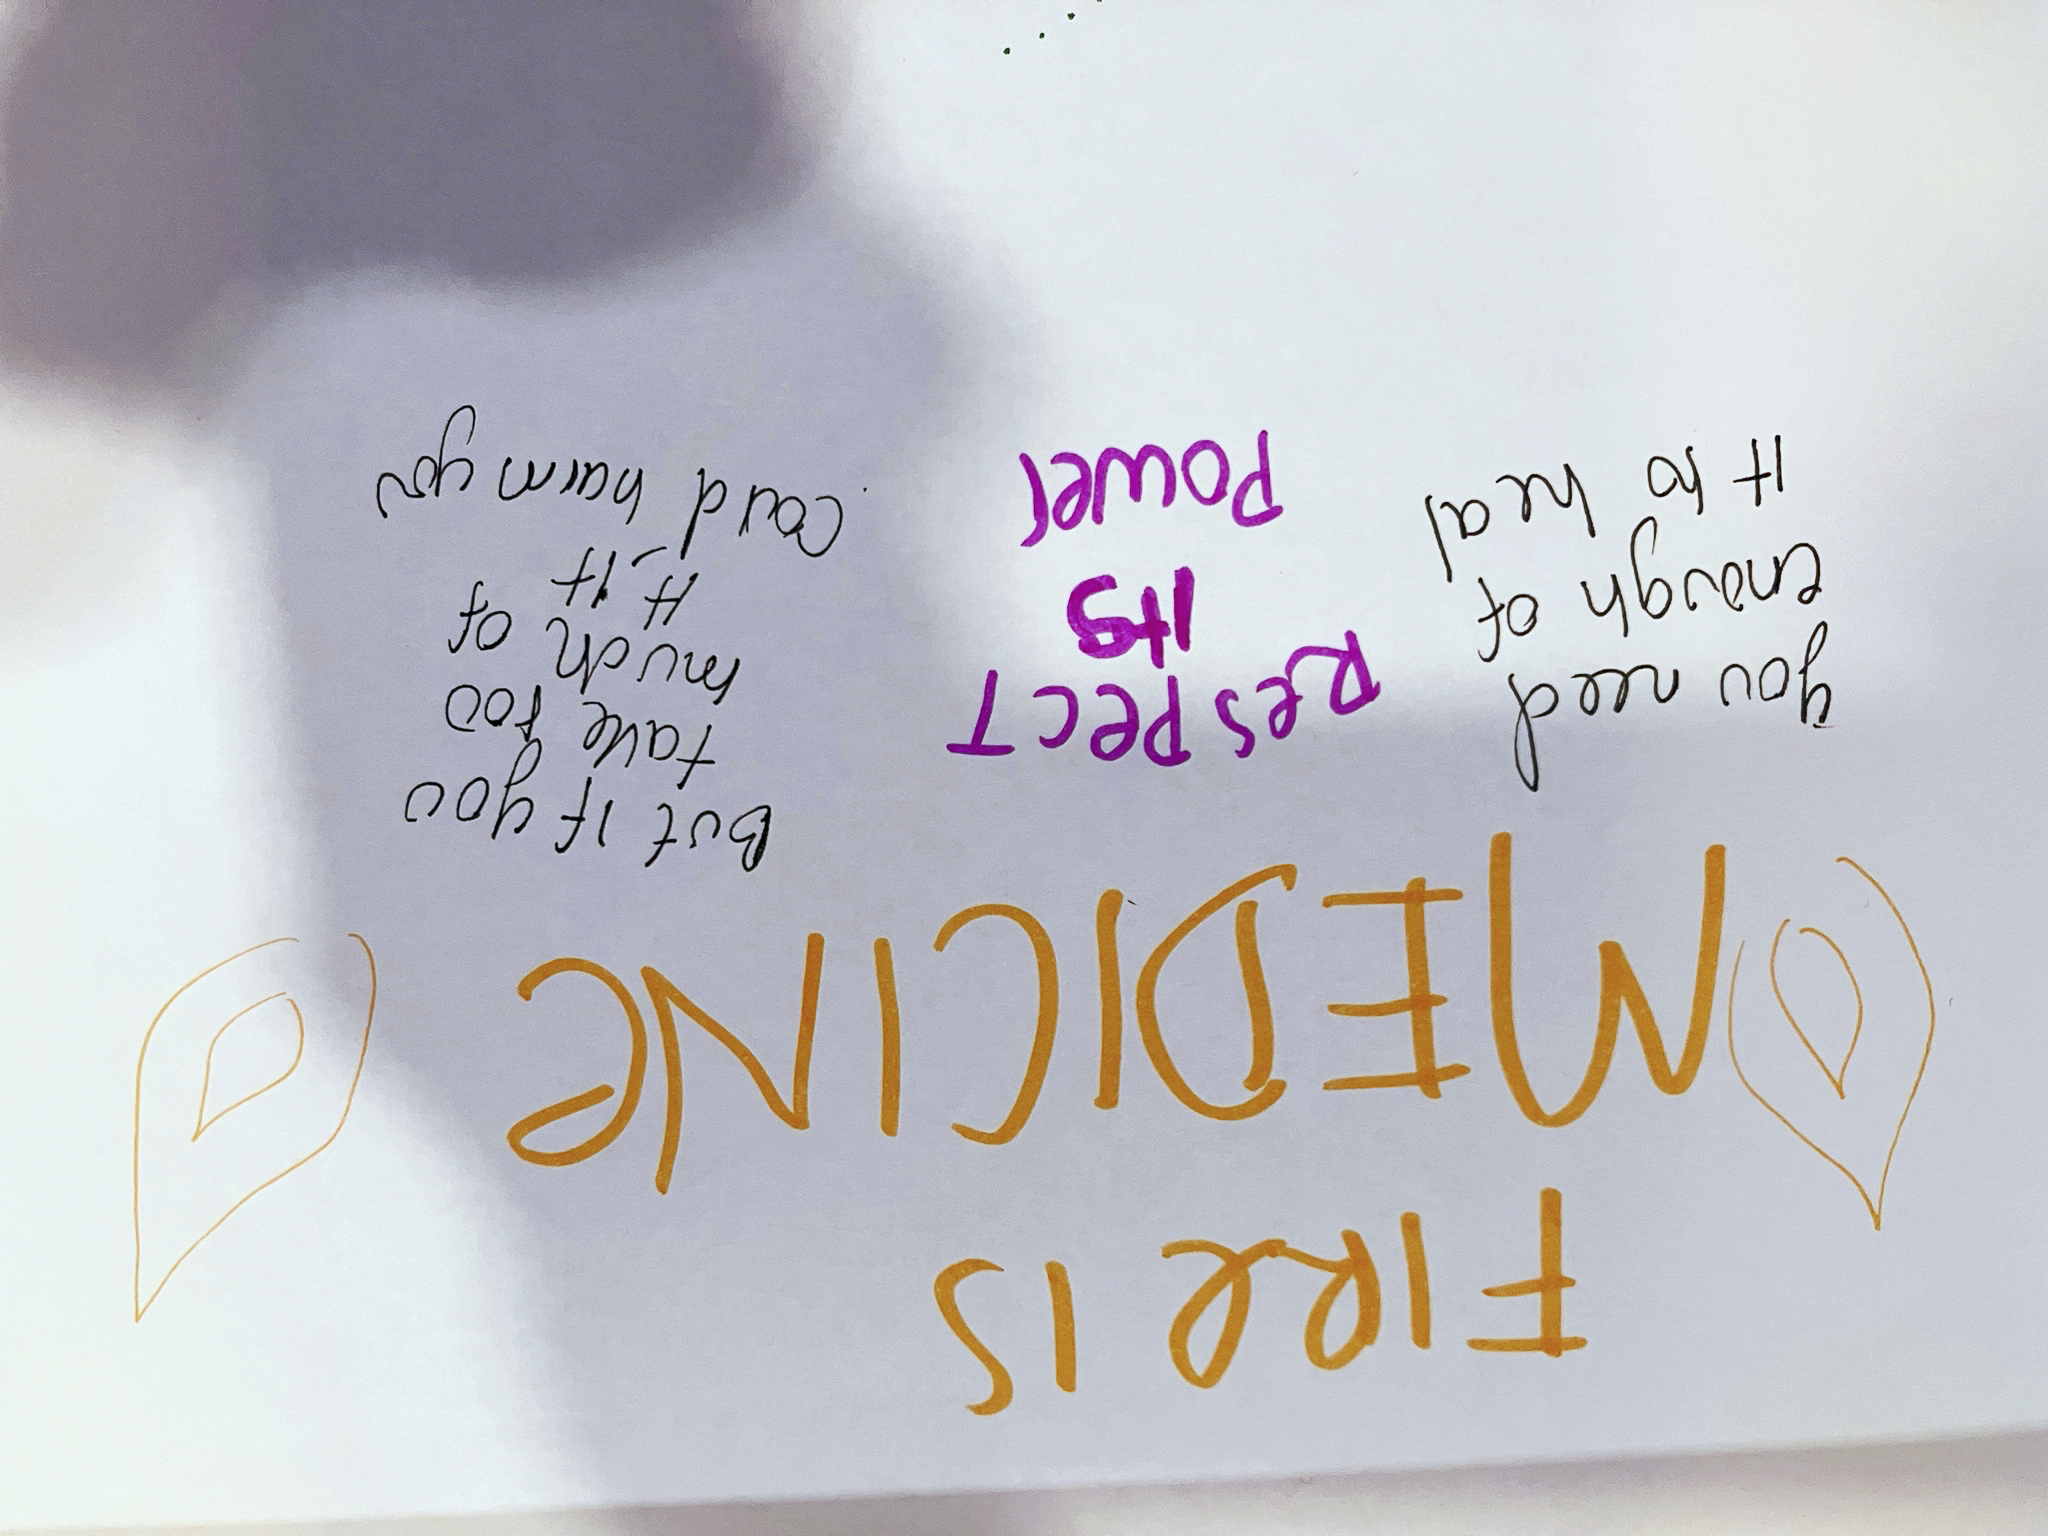 FIRE IS
MEDICINE
you need
enough of
it to heal
Respect
its
Power
But if you
take too
much of
it - it
could harm you